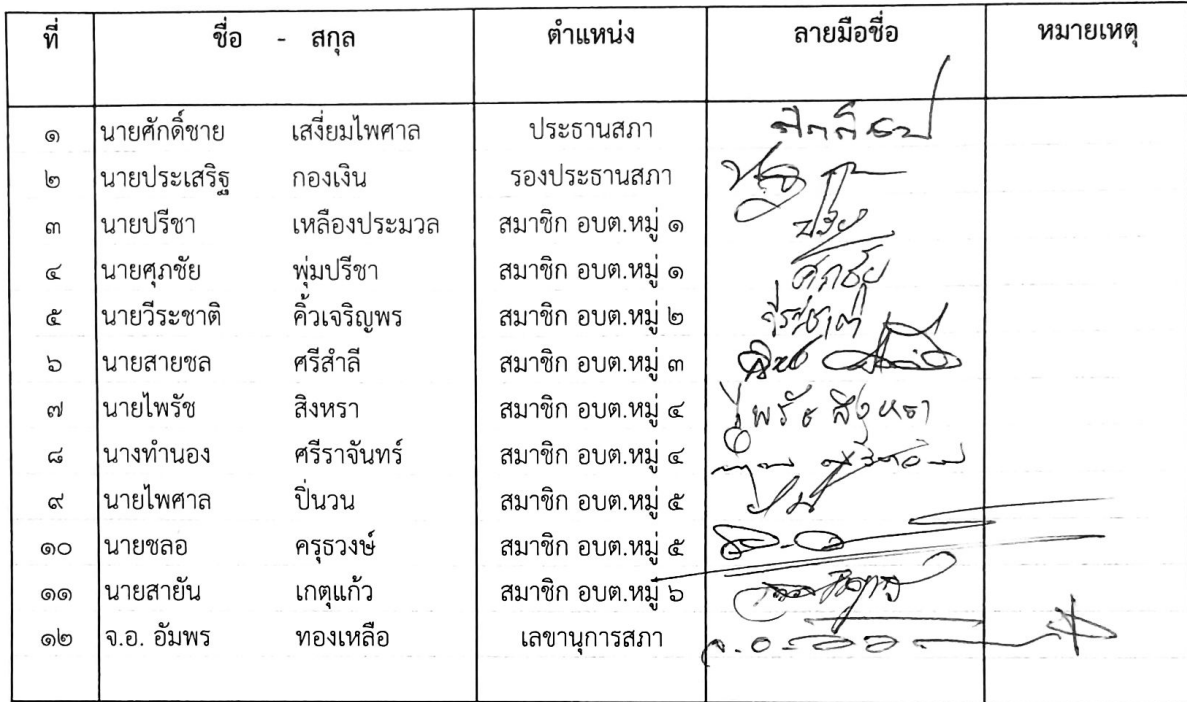 ที่ ชื่อ - สกุล ตำแหน่ง ลายมือชื่อ หมายเหตุ
๑ นายศักดิ์ชาย เสงี่ยมไพศาล ประธานสภา
๒ นายประเสริฐ กองเงิน รองประธานสภา
๓ นายปรีชา เหลืองประมวล สมาชิก อบต.หมู่ ๑
๔ นายศุภชัย พุ่มปรีชา สมาชิก อบต.หมู่ ๑ ศุภชัย
๕ นายวีระชาติ คิ้วเจริญพร สมาชิก อบต.หมู่ ๒ วีระชาติ
๖ นายสายชล ศรีสำลี สมาชิก อบต.หมู่ ๓
๗ นายไพรัช สิงหรา สมาชิก อบต.หมู่ ๔ ไพรัช สิงหรา
๘ นางทำนอง ศรีราจันทร์ สมาชิก อบต.หมู่ ๔
๙ นายไพศาล ปิ่นวน สมาชิก อบต.หมู่ ๕
๑๐ นายชลอ ครุธวงษ์ สมาชิก อบต.หมู่ ๕
๑๑ นายสายัน เกตุแก้ว สมาชิก อบต.หมู่ ๖
๑๒ จ.อ. อัมพร ทองเหลือ เลขานุการสภา